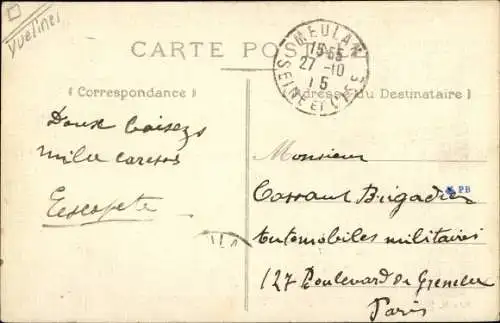 Yvelines
CARTE POSTALE
MEULAN
15 55
27 -10
15
SEINE ET OISE
( Correspondance )
Adresse du Destinataire )
Doux baisers
mille caresses
Monsieur
PB
Brigadier
Automobiles militaires
127 Boulevard de Grenelle
Paris